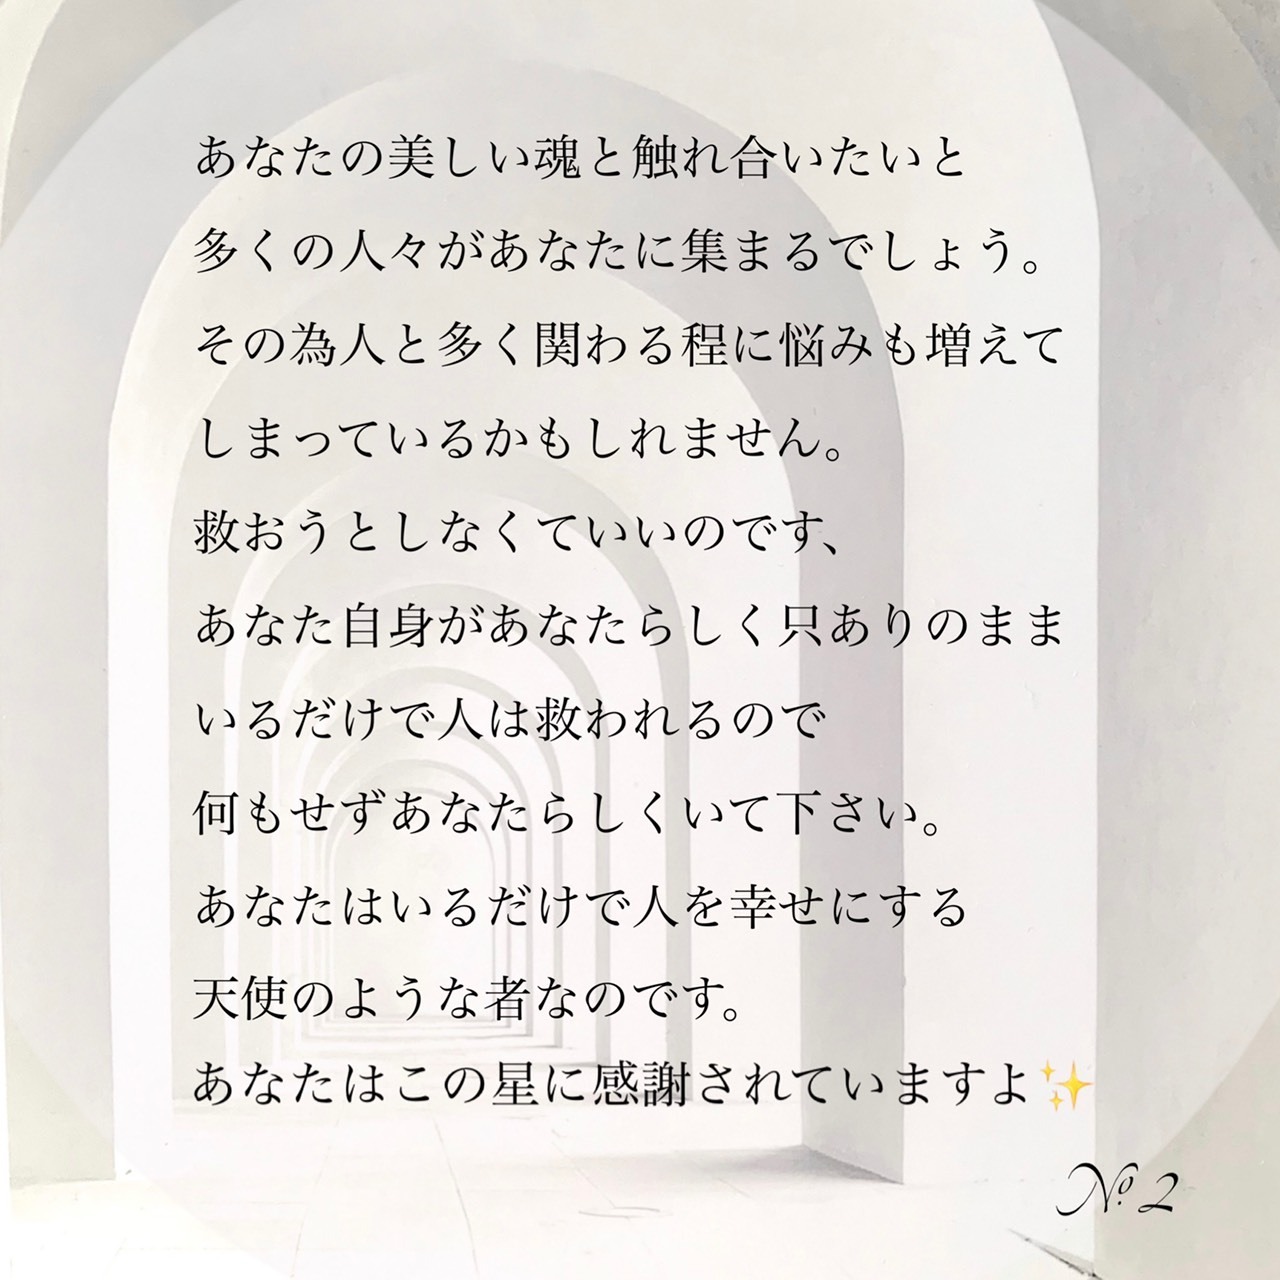 あなたの美しい魂と触れ合いたいと
多くの人々があなたに集まるでしょう。
その為人と多く関わる程に悩みも増えて
しまっているかもしれません。
救おうとしなくていいのです、
あなた自身があなたらしく只ありのまま
いるだけで人は救われるので
何もせずあなたらしくいて下さい。
あなたはいるだけで人を幸せにする
天使のような者なのです。
あなたはこの星に感謝されていますよ✨
№2